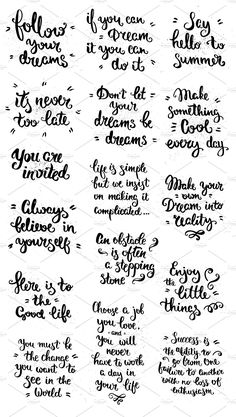 follow
your
dreams
if you can
Dream
it you can
do it
Say
hello to
summer
it's never
too late
Don't let
your
dreams be
dreams
Make
something
Cool
every day
You are
invited
life is simple
but we insist
on making it
complicated...
Make your
own
Dream into
reality
Always
believe in
yourself
An obstacle
is often
a stepping
stone
Enjoy
the
little
things
Here is to
the
Good life
Choose a job
you love,
and
you will
never
have to work
a day in
your life
You must be
the change
you want to
see in the
World
Success is
the ability to
go from one
failure to another
with no loss of
enthusiasm